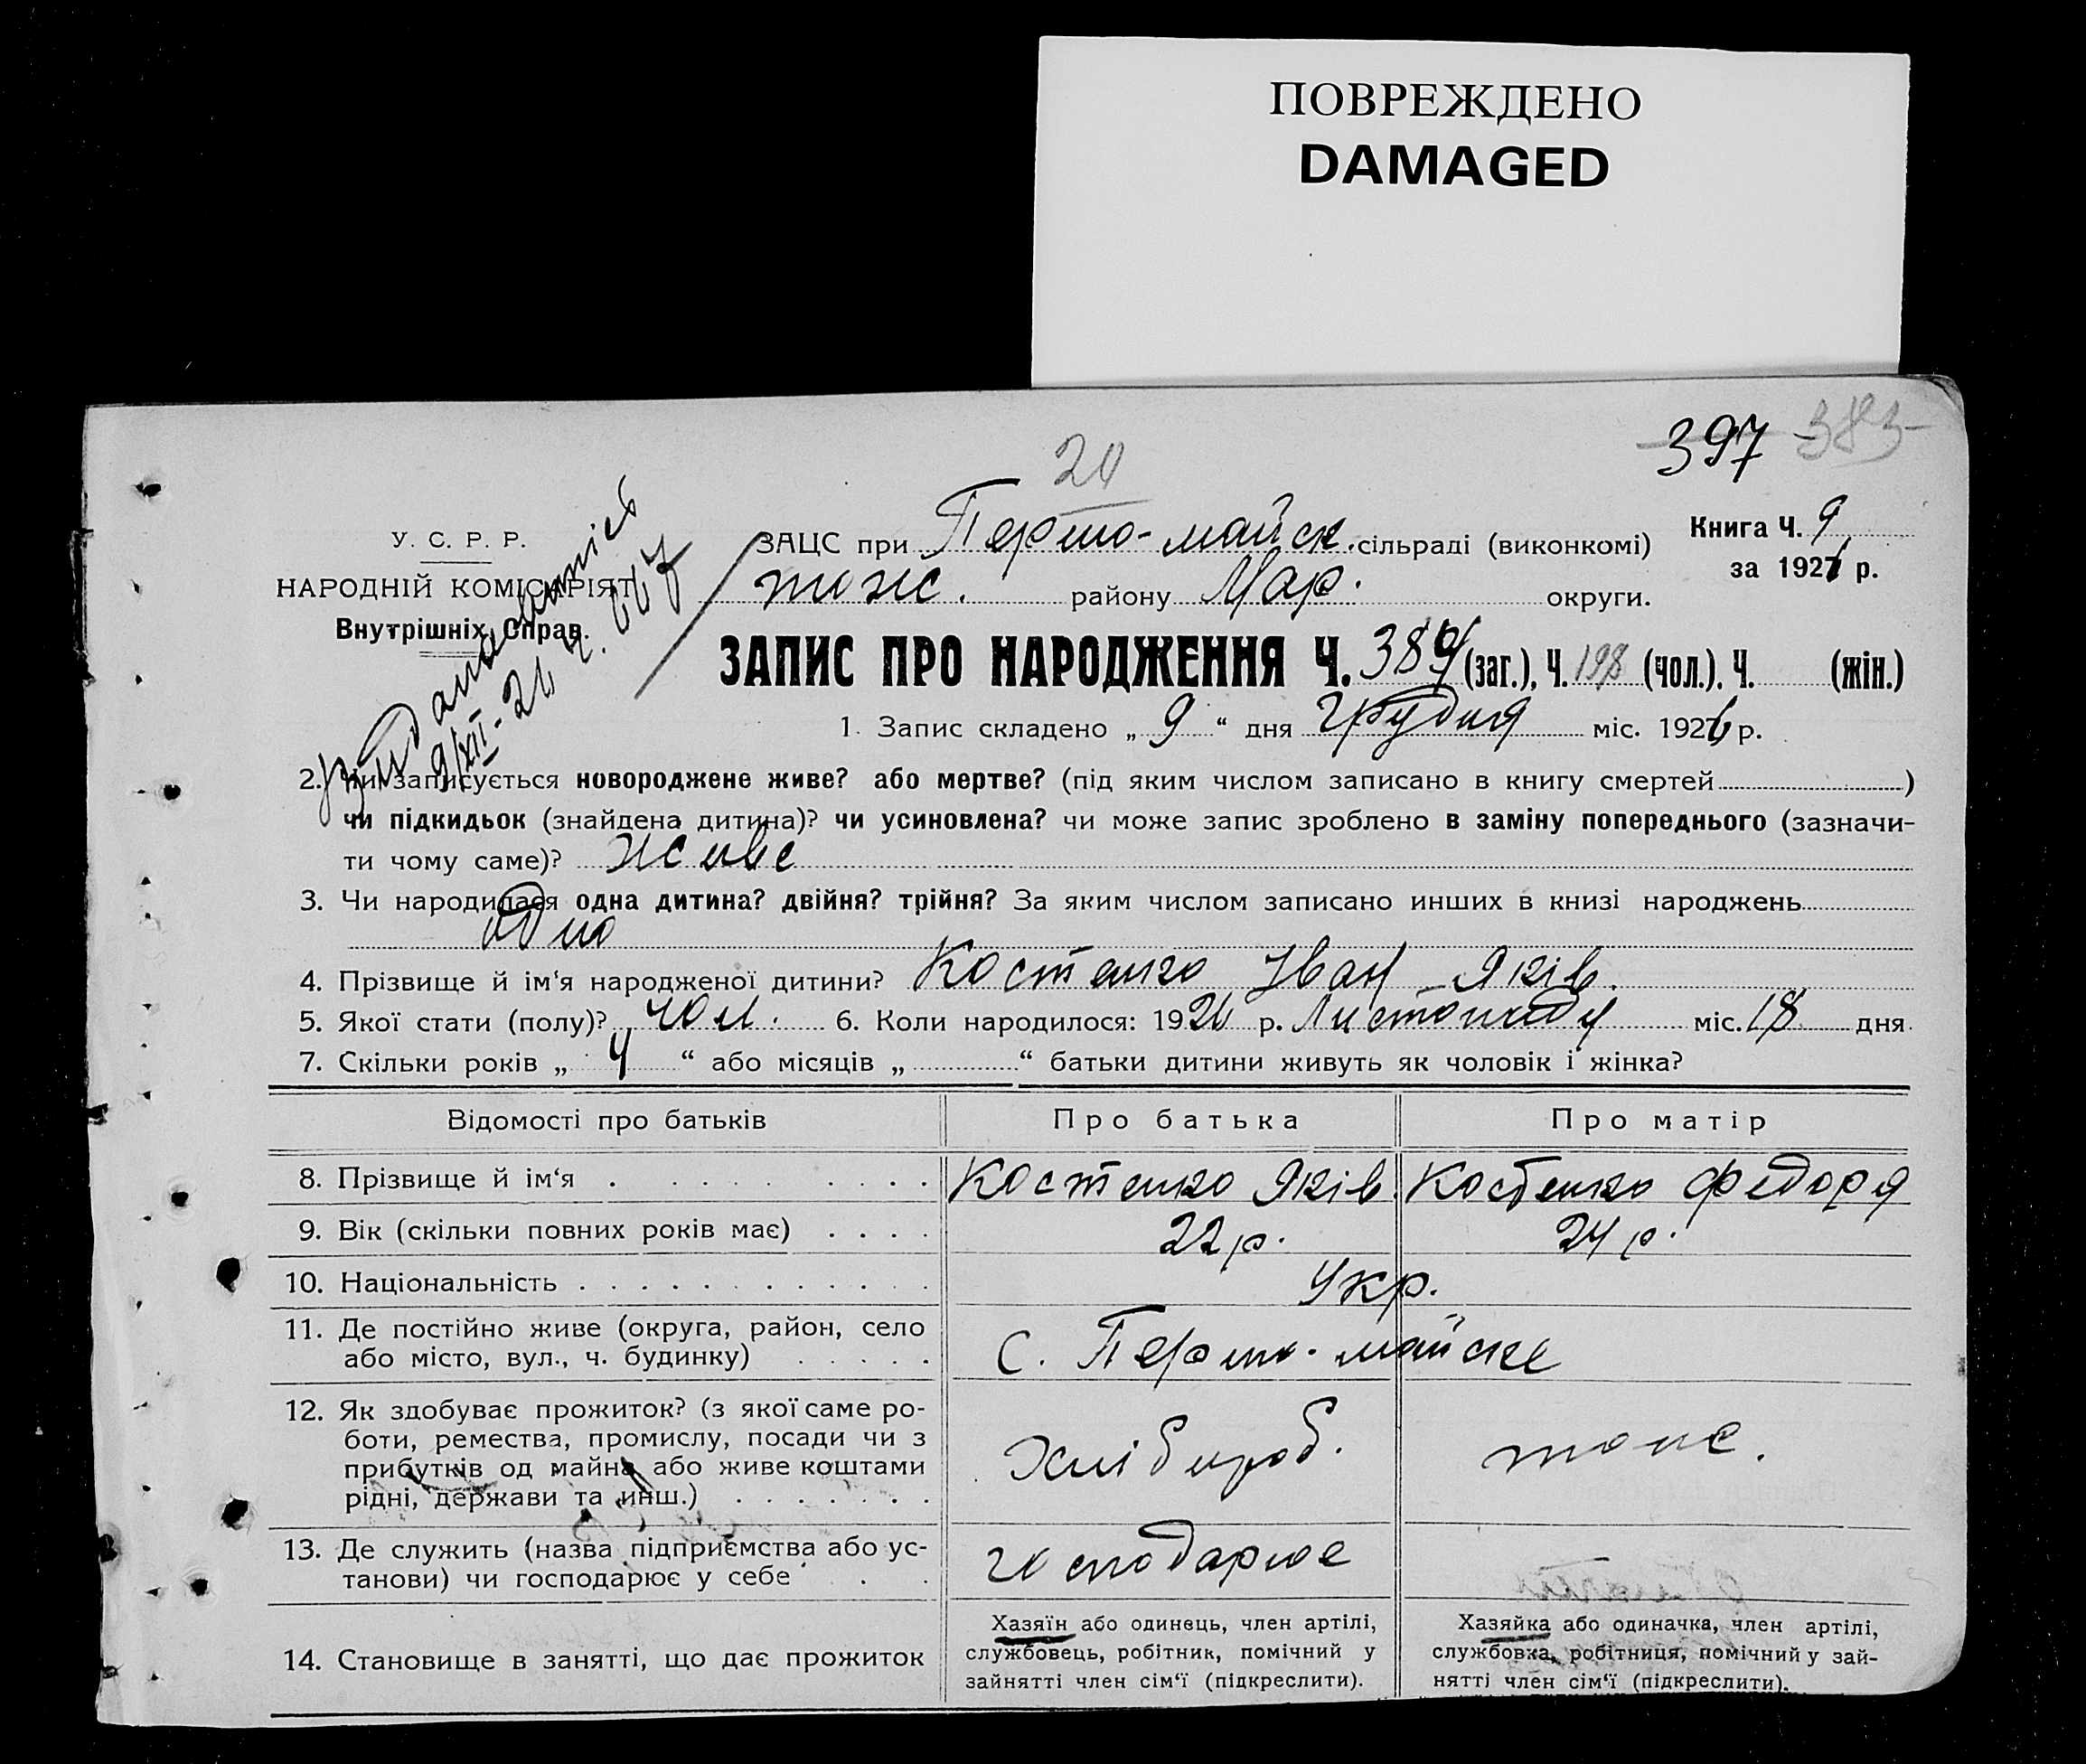 ПОВРЕЖДЕНО
DAMAGED
397 383
20
У. С. Р. Р.
НАРОДНІЙ КОМІСАРІЯТ
Внутрішніх Справ.
9/XII-26 р.
ЗАЦС при Першо-майск. сільраді (виконкомі)
Книга Ч. 9
за 1926 р.
тож. району Мар. округи.
ЗАПИС ПРО НАРОДЖЕННЯ Ч. 389 (заг.), Ч. 198 (чол.), Ч. (жін.)
1. Запис складено „ 9 “ дня Грудня міс. 1926 р.
2. Чи записується новороджене живе? або мертве? (під яким числом записано в книгу смертей )
чи підкидьок (знайдена дитина)? чи усиновлена? чи може запис зроблено в заміну попереднього (зазначи-
ти чому саме)? живе
3. Чи народилася одна дитина? двійня? трійня? За яким числом записано инших в книзі народжень
одно
4. Прізвище й ім‘я народженої дитини? Костенко Іван Яків.
5. Якої стати (полу)? чол. 6. Коли народилося: 1926 р. Листопаду міс. 18 дня
7. Скільки років „ 4 “ або місяців „ “ батьки дитини живуть як чоловік і жінка?
Відомості про батьків Про батька Про матір
8. Прізвище й ім‘я Костенко Яків. Костенко Федора
9. Вік (скільки повних років має) 22 р. 24 р.
10. Національність Укр.
11. Де постійно живе (округа, район, село
або місто, вул., ч. будинку) с. Першо-майске
12. Як здобуває прожиток? (з якої саме ро-
боти, ремества, промислу, посади чи з
прибутків од майна або живе коштами
рідні, держави та инш.) Хлібороб. тоже.
13. Де служить (назва підприємства або ус-
танови) чи господарює у себе господарює
14. Становище в занятті, що дає прожиток
Хазяїн або одинець, член артілі,
службовець, робітник, помічний у
зайнятті член сім‘ї (підкреслити).
Хазяйка або одиначка, член артілі,
службовка, робітниця, помічний у зай-
нятті член сім‘ї (підкреслити).